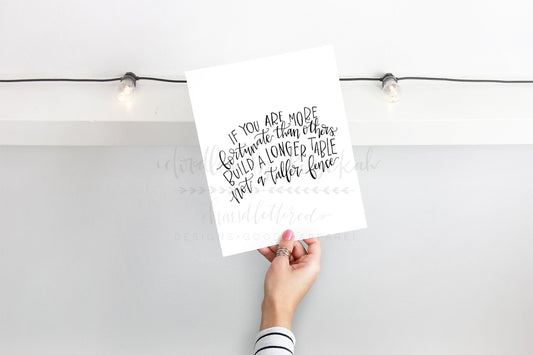 IF YOU ARE MORE
fortunate than others
BUILD A LONGER TABLE
not a taller fence
handlettered
DESIGNS+GOODS+APPAREL